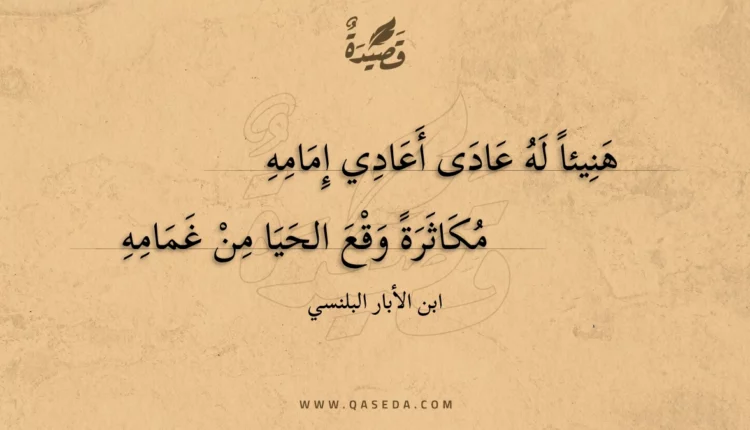 قَصِيدَةٌ
هَنِيئاً لَهُ عَادَى أَعَادِي إِمَامِهِ
مُكَاثَرَةً وَقْعَ الحَيَا مِنْ غَمَامِهِ
ابن الأبار البلنسي
WWW.QASEDA.COM